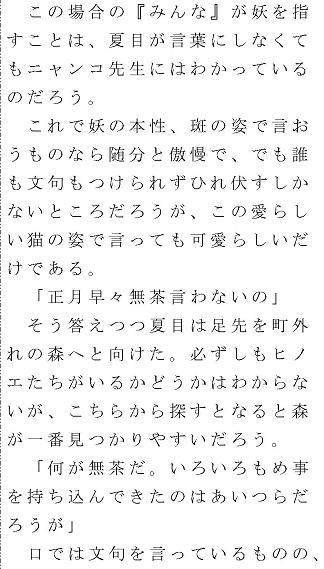 この場合の『みんな』が妖を指
すことは、夏目が言葉にしなくて
もニャンコ先生にはわかっている
のだろう。
これで妖の本性、斑の姿で言お
うものなら随分と傲慢で、でも誰
も文句もつけられずひれ伏すしか
ないところだろうが、この愛らし
い猫の姿で言っても可愛らしいだ
けである。
「正月早々無茶言わないの」
そう答えつつ夏目は足先を町外
れの森へと向けた。必ずしもヒノ
エたちがいるかどうかはわからな
いが、こちらから探すとなると森
が一番見つかりやすいだろう。
「何が無茶だ。いろいろもめ事
を持ち込んできたのはあいつらだ
ろうが」
口では文句を言っているものの、